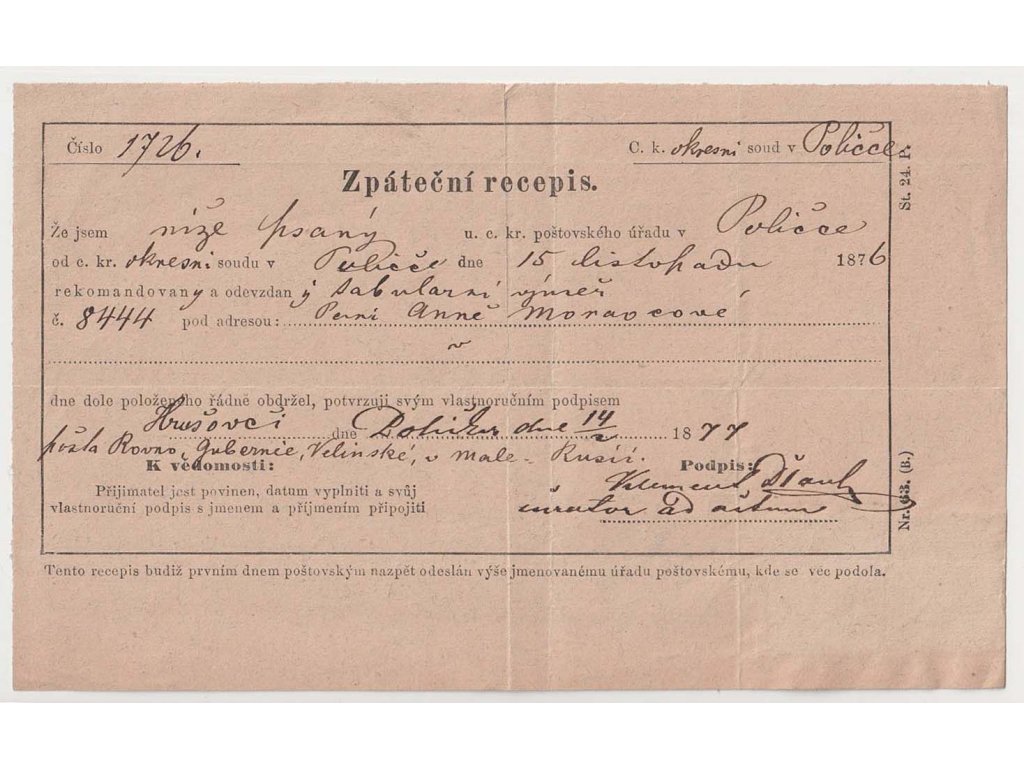 Číslo 1726. C. k. okresní soud v Poličce
Zpáteční recepis.
Že jsem níže psaný u. c. kr. poštovského úřadu v Poličce
od c. kr. okresní soudu v Poličce dne 15 listopadu 1876
rekomandovaný a odevzdaný tabularní výměr
č. 8444 pod adresou: Paní Anně Moravcové
v
dne dole položeného řádně obdržel, potvrzuji svým vlastnoručním podpisem
Hrušovči dne Polička dne 14/2 1877
pošta Rovno, Gubernie, Velinské, v Male-Rusií.
K vědomosti: Podpis:
Přijimatel jest povinen, datum vyplniti a svůj Klement
vlastnoruční podpis s jmenem a příjmením připojiti curator ad actum
Tento recepis budiž prvním dnem poštovským nazpět odeslán výše jmenovanému úřadu poštovskému, kde se věc podola.
St. 24. P.
Nr. 63. (B.)